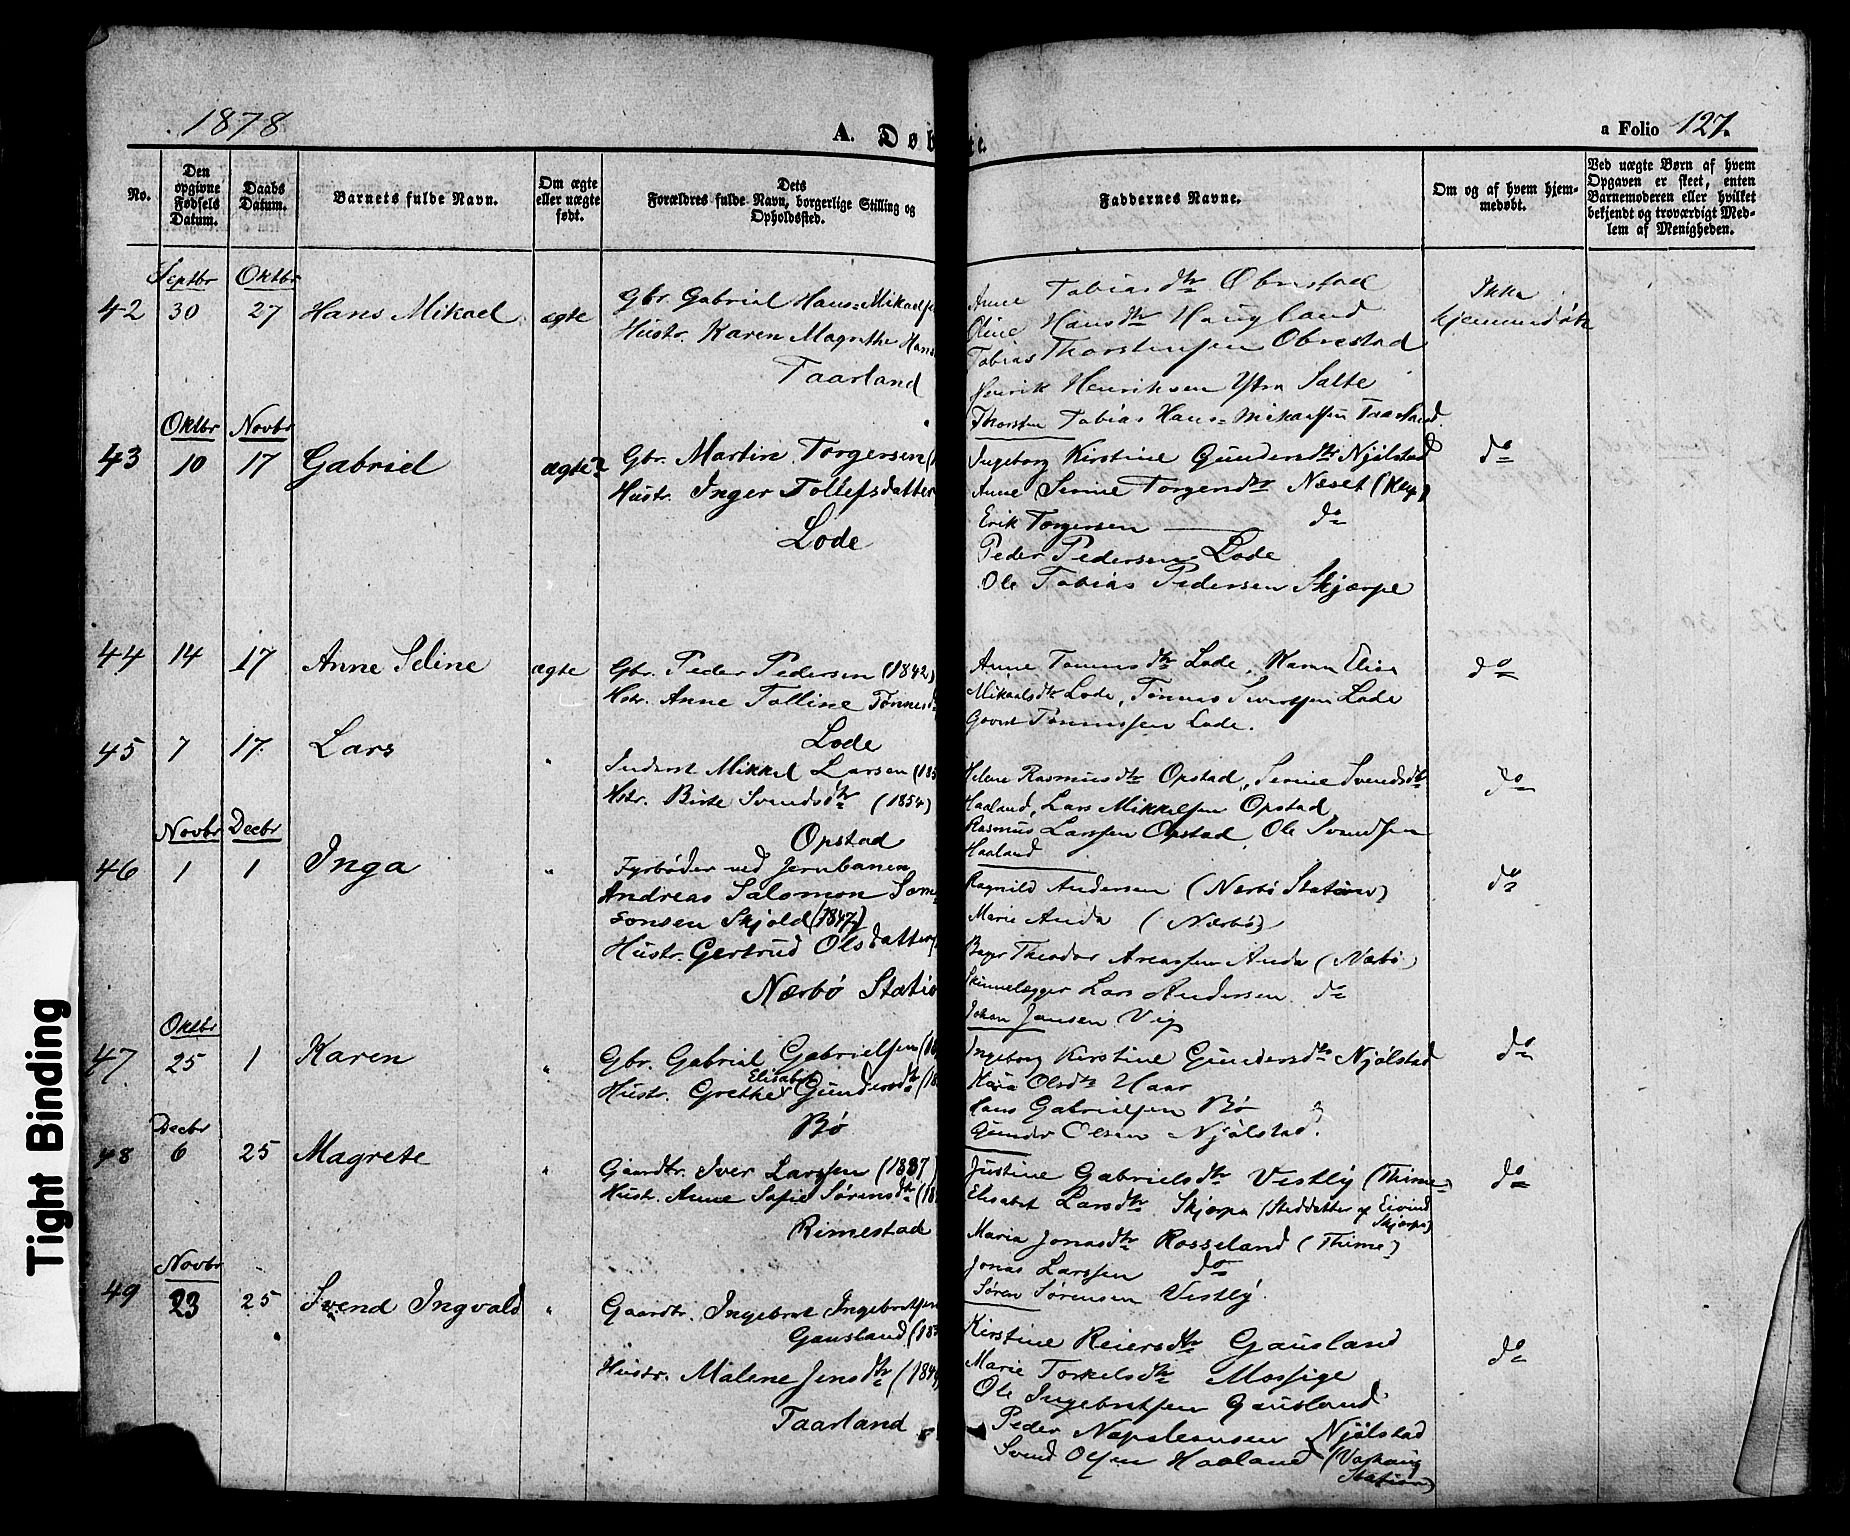 1878
A. Døb te.
a Folio 127.
No.
Den opgivne Fødsels Datum.
Daabs Datum.
Barnets fulde Navn.
Om ægte eller uægte født.
Dets Forældres fulde Navn, borgerlige Stilling og Opholdssted.
Faddernes Navne.
Om og af hvem hjemmedøbt.
Ved uægte Børn af hvem Opgaven er skeet, enten Barnemoderen eller hvilket bekjendt og troværdigt Medlem af Menigheden.
Septbr Oktbr
42 30 27 Hans Mikael ægte
Gbr. Gabriel Hans=Mikaels
Hustr. Karen Magrethe Hans
Taarland
Anne Tobiasdtr Obrestad
Oline Hansdtr Haugland
Tobias Thorstensen Obrestad
Henrik Henriksen Ytre Salte
Thorsten Tobias Hans=Mikaelsen Taarland.
Ikke
hjemmedøbt
Oktbr Novbr
43 10 17 Gabriel ægte
Gbr. Martin Torgersen (
Hustr. Inger Tollefsdatter
Lode
Ingeborg Kirstine Gundersdtr Njølstad
Anne Serine Torgersdtr Næset (Klep)
Erik Torgersen — do
Peder Pedersen Lode
Ole Tobias Pedersen Skjærpe
do
44 14 17 Anne Seline ægte
Gbr. Peder Pedersen (1842)
Hstr. Anne Tolline Tønnesd
Lode
Anne Tønnesdtr Lode, Karen Elise
Mikaelsdtr Lode, Tønnes Sivertsen Lode
Tønnessen Lode.
do
45 7 17. Lars "
Inderst Mikkel Larsen (185
Hstr. Birte Svendsdtr (1854)
Opstad
Helene Rasmusdtr Opstad, Serine Svendsdtr
Haaland, Lars Mikkelsen Opstad
Rasmus Larssen Opstad, Ole Svendsen
Haaland
do
Novbr Decbr
46 1 1 Inga "
Fyrbøder ved Jernbanen
Andreas Salomon Sam
sonsen Skjold (1847)
Hustr. Gertrud Olsdatter
Nærbø Statio
Ragnild Andersen (Nærbø Station)
Marie Anda (Nærbø)
Theodor Areassen Anda (Nærbø)
Skinnelægger Lars Andersen do
Johan Jansen Vig
do
Oktbr
47 25 1 Karen "
Gbr. Gabriel Gabrielsen (18
Hustr. Grethe Elisabet Gundersdtr (18
Bø
Ingeborg Kirstine Gundersdtr Njølstad
Olsdtr Haar
Hans Gabrielsen Bø
Gunder Olsen Njølstad.
do
Decbr
48 6 25 Magrete "
Gaardbr. Iver Larssen (1837)
Hustr. Anne Sofie Sørensdtr (18
Rimestad
Justine Gabrielsdtr Vestly (Thime)
Elisabet Larsdtr Skjærpe (Steddatter af Eivind
Skjærpe)
Maria Jonasdtr Rosseland (Thime)
Jonas Larssen do
Søren Sørensen Vestly.
do
Novbr
49 23 25 Svend Ingvald "
Gaardbr. Ingebret Ingebretsen
Gausland (185
Hustr. Malene Jensdtr (184
Taarland
Kirstine Reiersdtr Gausland
Marie Torkelsdtr Mossige
Ole Ingebretsen Gausland
Peder Napoleonsen Njølstad
Svend Olsen Haaland (Varhaug
Station)
do
Tight Binding